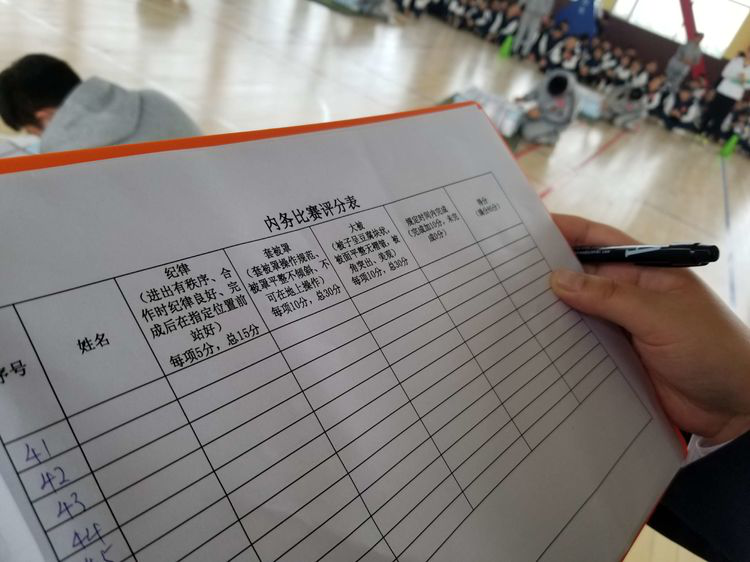 内务比赛评分表
序号
姓名
纪律
(进出有秩序、合
作时纪律良好、完
成后在指定位置前
站好)
每项5分，总15分
套被罩
(套被罩操作规范、
被罩平整不倾斜、不
可在地上操作)
每项10分，总30分
大被
(被子呈豆腐块状，
被面平整无褶皱，被
角突出、美观)
每项10分，总30分
规定时间内完成
(完成加10分，未完
成0分)
得分
41
42
43
44
45